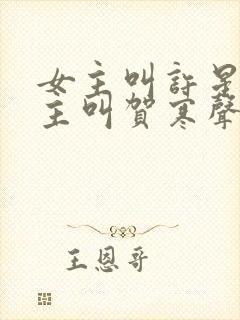 女主叫許星
主叫賀寒聲
王恩哥